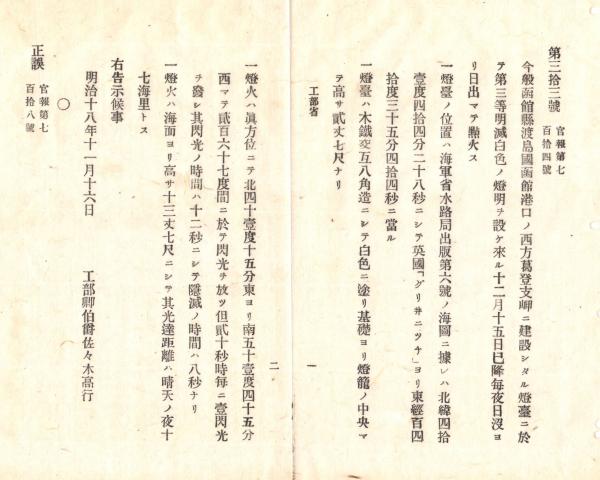 第三拾三號
官報第七
百拾四號
今般函館縣渡島國函館港口ノ西方葛登支岬ニ建設シタル燈臺ニ於
テ第三等明滅白色ノ燈明ヲ設ケ來ル十二月十五日已降每夜日沒ヨ
リ日出マテ點火ス
一燈臺ノ位置ハ海軍省水路局出版第六號ノ海圖ニ據レハ北緯四拾
壹度四拾四分二十八秒ニシテ英國「グリ井ニツチ」ヨリ東經百四
拾度三十五分四拾四秒ニ當ル
一燈臺ハ木鐵交互八角造ニシテ白色ニ塗リ基礎ヨリ燈籠ノ中央マ
テ高サ貳丈七尺ナリ
工部省
一
一燈火ハ眞方位ニテ北四十壹度十五分東ヨリ南五十壹度四十五分
西マテ貳百六十七度間ニ於テ閃光ヲ放ツ但貳十秒時每ニ壹閃光
ヲ發シ其閃光ノ時間ハ十二秒ニシテ隱滅ノ時間ハ八秒ナリ
一燈火ハ海面ヨリ高サ十三丈七尺ニシテ其光達距離ハ晴天ノ夜十
七海里トス
右告示候事
明治十八年十一月十六日
工部卿伯爵佐々木高行
〇
正誤
官報第七
百拾八號
二